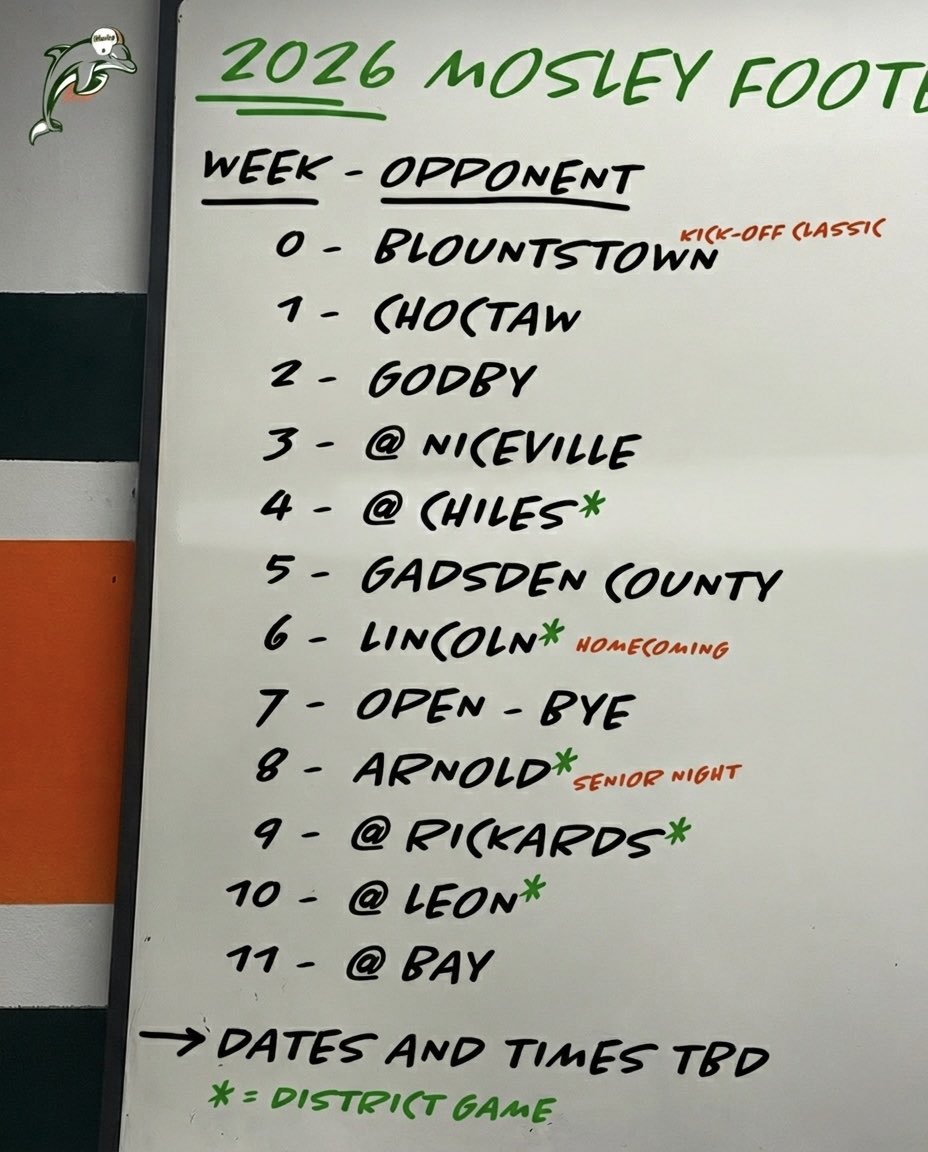 2026 MOSLEY FOOTB
WEEK - OPPONENT
0 - BLOUNTSTOWN KICK-OFF CLASSIC
1 - CHOCTAW
2 - GODBY
3 - @ NICEVILLE
4 - @ CHILES*
5 - GADSDEN COUNTY
6 - LINCOLN* HOMECOMING
7 - OPEN - BYE
8 - ARNOLD* SENIOR NIGHT
9 - @ RICKARDS*
10 - @ LEON*
11 - @ BAY
→ DATES AND TIMES TBD
* = DISTRICT GAME